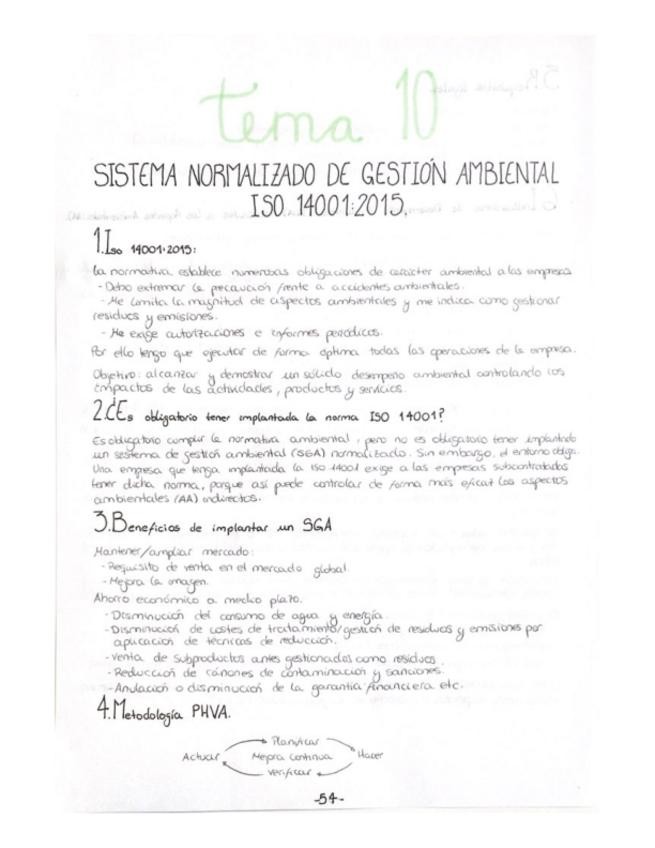 tema 10
SISTEMA NORMALIZADO DE GESTIÓN AMBIENTAL
ISO 14001:2015.
1. Iso 14001:2015:
La normativa establece numerosas obligaciones de carácter ambiental a las empresas
- Debo extremar la precaución frente a accidentes ambientales.
- Me limita la magnitud de aspectos ambientales y me indica como gestionar
residuos y emisiones.
- Me exige autorizaciones e informes periódicos.
Por ello tengo que ejecutar de forma óptima todas las operaciones de la empresa.
Objetivo: alcanzar y demostrar un sólido desempeño ambiental controlando los
impactos de las actividades, productos y servicios.
2. ¿Es obligatorio tener implantada la norma ISO 14001?
Es obligatorio cumplir la normativa ambiental, pero no es obligatorio tener implantado
un sistema de gestión ambiental (SGA) normalizado. Sin embargo, el entorno obliga.
Una empresa que tenga implantada la ISO 14001 exige a las empresas subcontratadas
tener dicha norma, porque así puede controlar de forma más eficaz los aspectos
ambientales (AA) indirectos.
3. Beneficios de implantar un SGA
Mantener/ampliar mercado:
- Requisito de venta en el mercado global.
- Mejora la imagen.
Ahorro económico a medio plazo.
- Disminución del consumo de agua y energía.
- Disminución de costes de tratamiento/gestión de residuos y emisiones por
aplicación de técnicas de reducción.
- Venta de subproductos antes gestionados como residuos.
- Reducción de cánones de contaminación y sanciones.
- Anulación o disminución de la garantía financiera etc.
4. Metodología PHVA.
Planificar
Actuar Mejora continua Hacer
Verificar
-54-